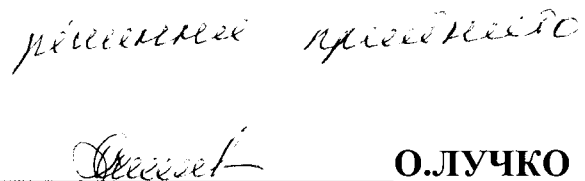 рішення прийнято
О.ЛУЧКО